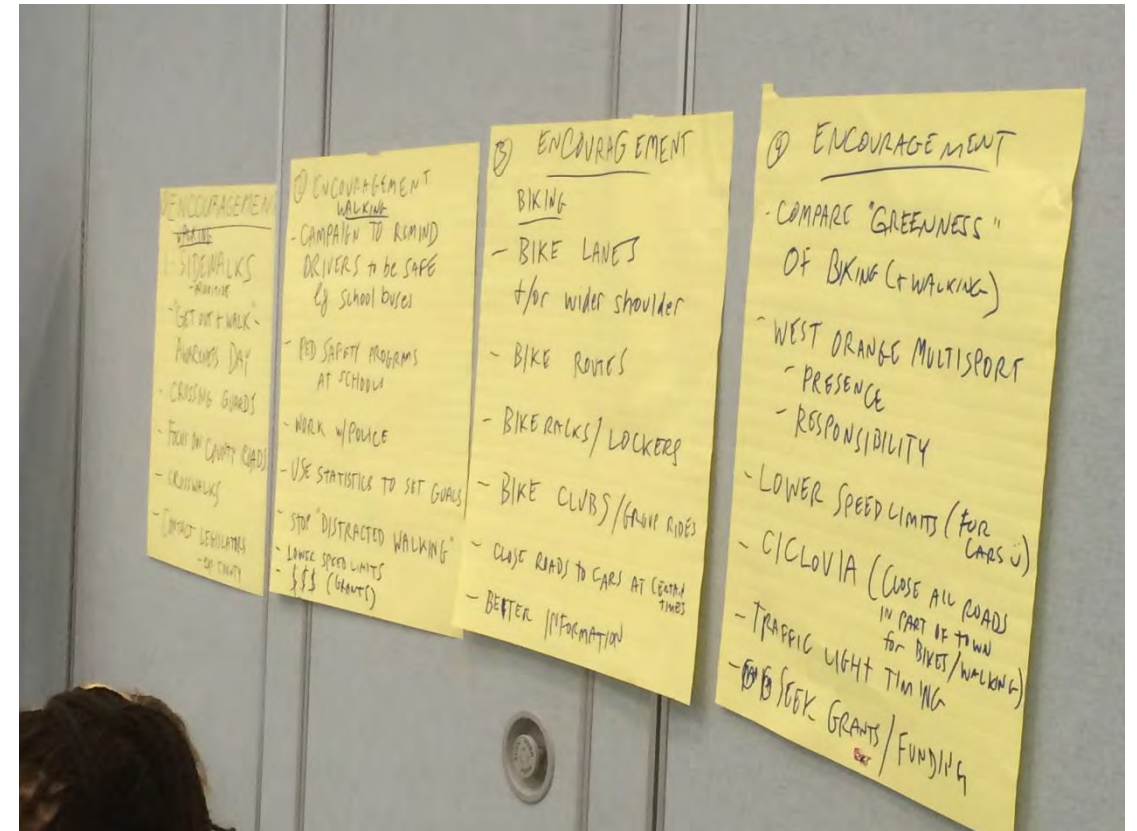 ENCOURAGEMEN
WALKING
- SIDEWALKS
- "GET OUT + WALK" -
AWARENESS DAY
- CROSSING GUARDS
- FOCUS ON COUNTY ROADS
- CROSSWALKS
- CONTACT LEGISLATORS
COUNTY
ENCOURAGEMENT
WALKING
- CAMPAIGN TO REMIND
DRIVERS to be SAFE
by school buses
- PED SAFETY PROGRAMS
AT SCHOOLS
- WORK W/POLICE
- USE STATISTICS TO SET GOALS
- STOP "DISTRACTED WALKING"
- LOWER SPEED LIMITS
- $$$ (GRANTS)
③ ENCOURAGEMENT
BIKING
- BIKE LANES
+/or wider shoulder
- BIKE ROUTES
- BIKE RACKS/LOCKERS
- BIKE CLUBS/GROUP RIDES
- CLOSE ROADS TO CARS AT CERTAIN
TIMES
- BETTER INFORMATION
④ ENCOURAGEMENT
- COMPARE "GREENNESS"
OF BIKING (+ WALKING)
- WEST ORANGE MULTISPORT
- PRESENCE
- RESPONSIBILITY
- LOWER SPEED LIMITS (FOR
CARS)
- CICLOVIA (CLOSE ALL ROADS
IN PART OF TOWN
for BIKES/WALKING)
- TRAFFIC LIGHT TIMING
- SEEK GRANTS/FUNDING